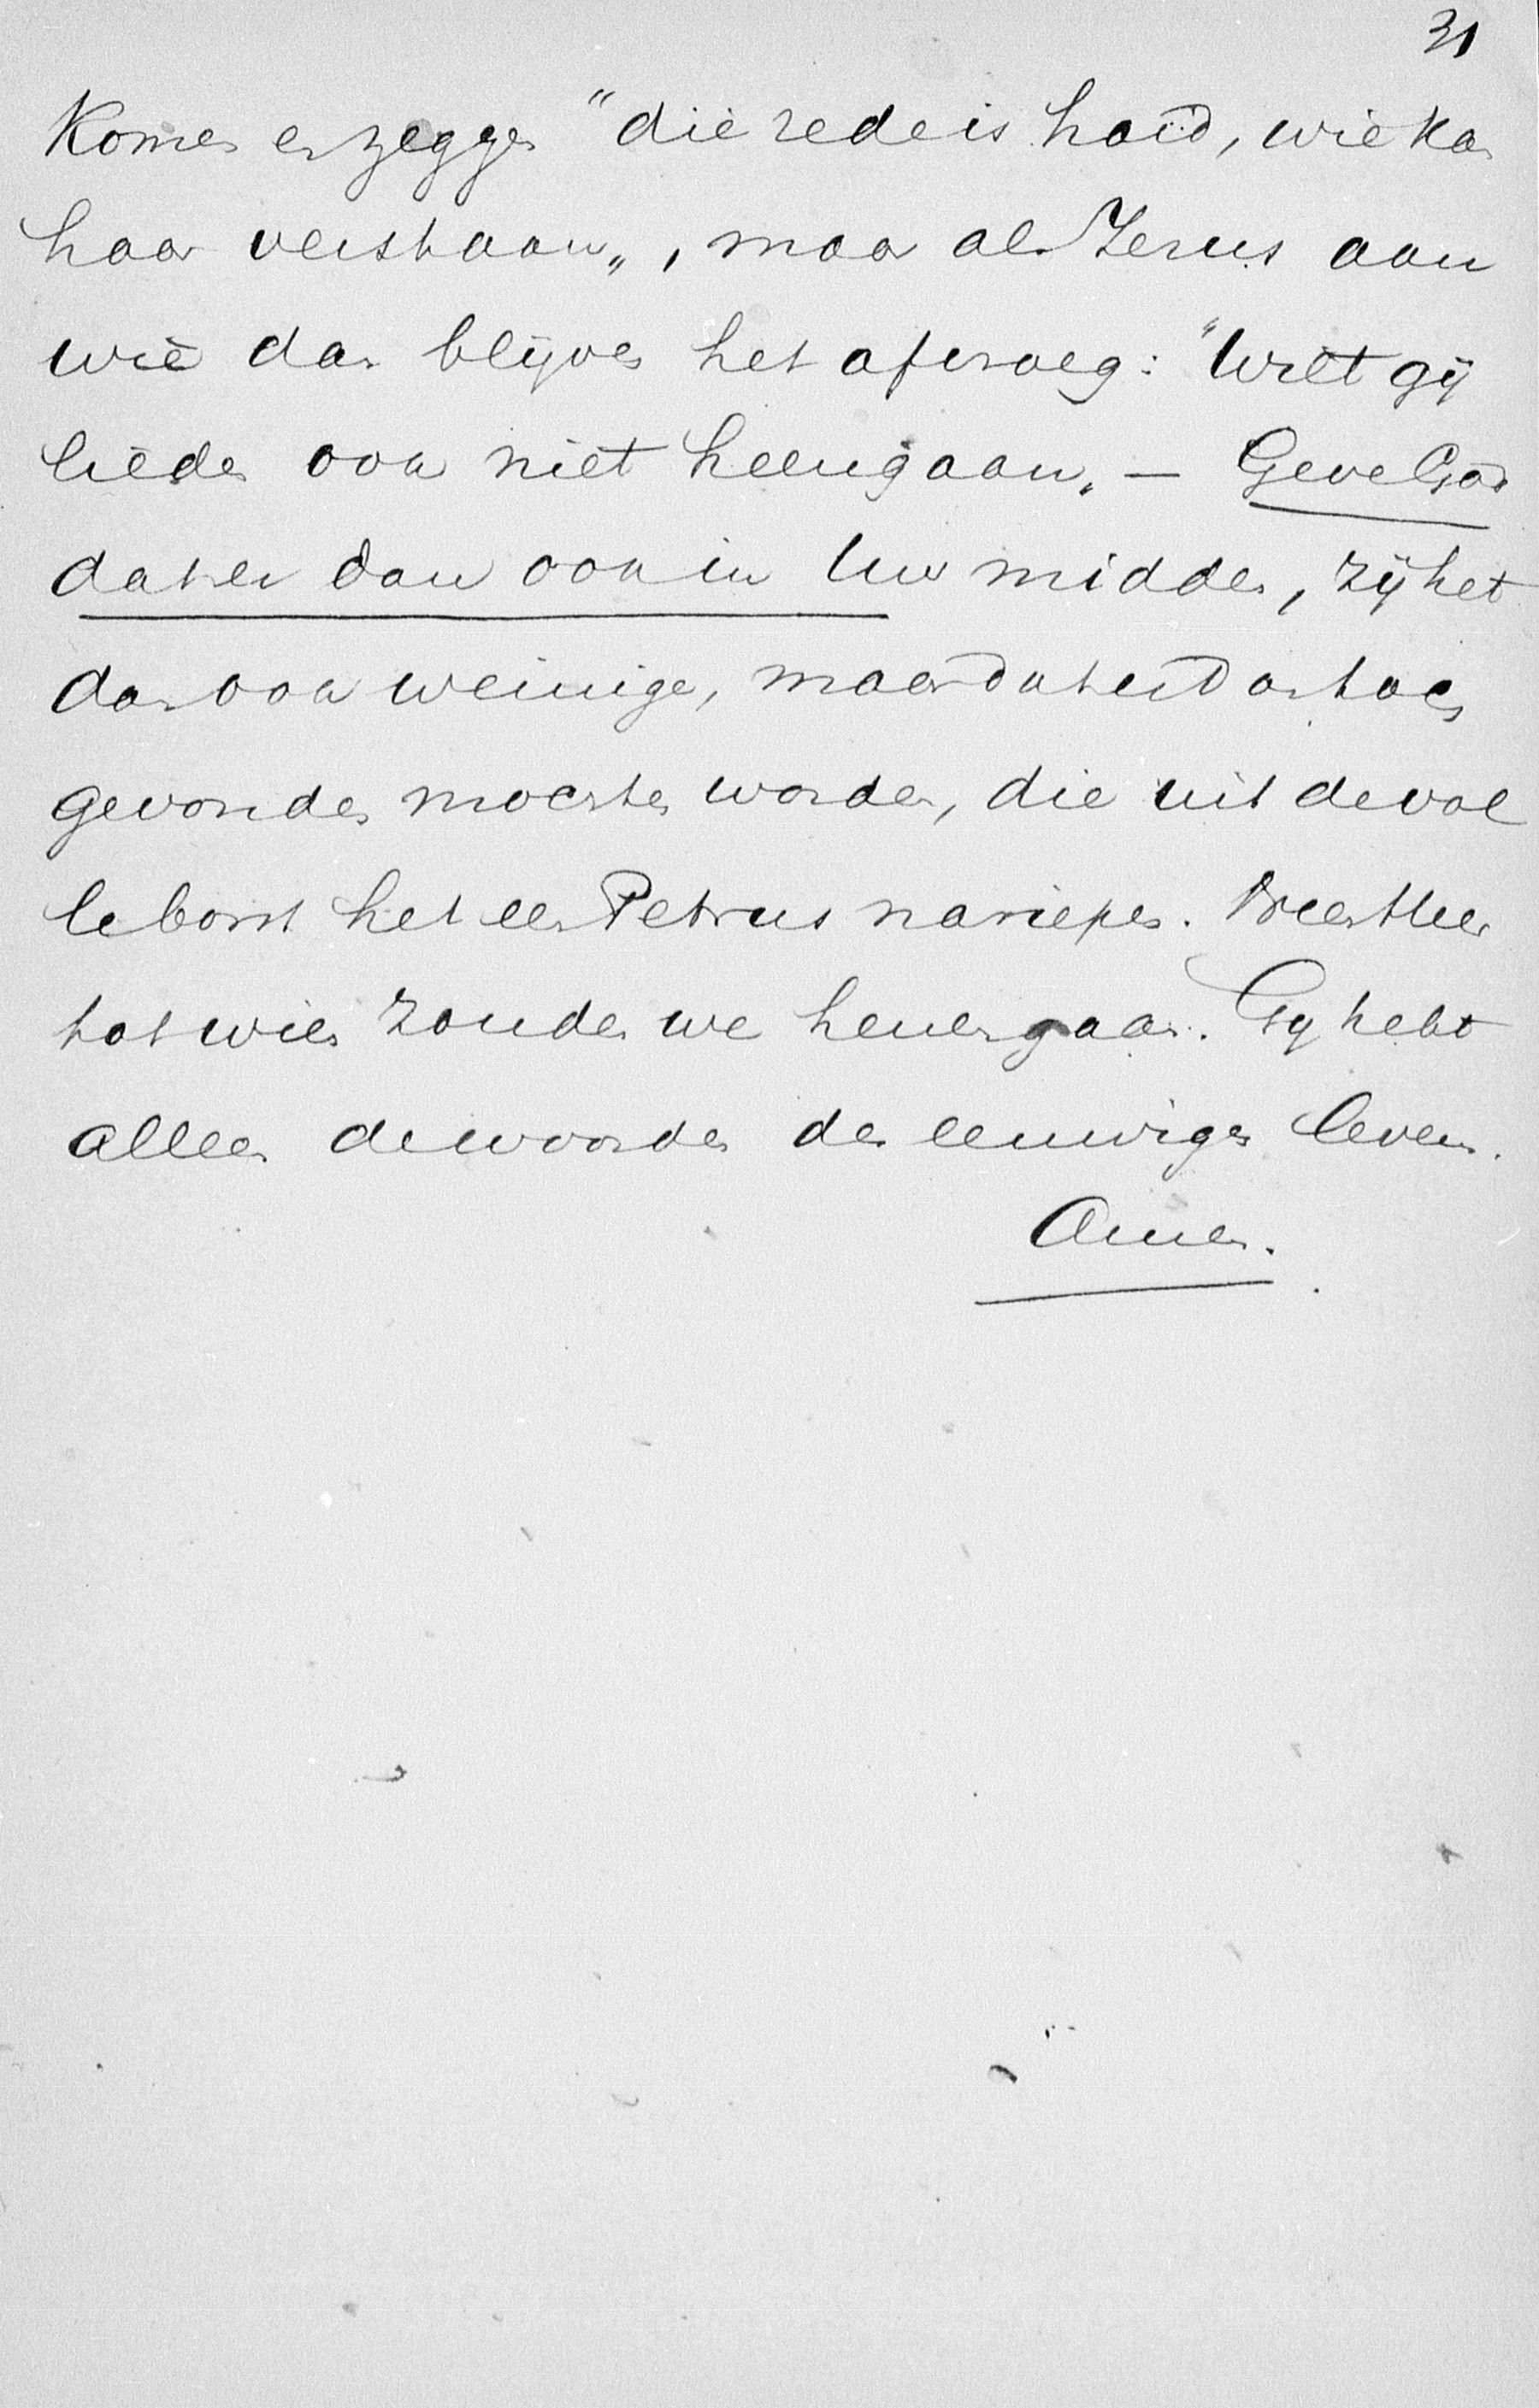 31
Komen en zeggen "die rede is hard, wie kan
haar verstaan„, maar als Jezus aan
wie dan blijven het afvroeg: "Wilt gij
lieden ook niet heengaan„ — Geve God
dat er dan ook in Uw midden, zij het
dan ook weinige, maar dat er dan toch
gevonden mochten worden, die uit de vol
le borst het een Petrus nariepen. Heer
tot wien zouden we henengaan. Gy hebt
alleen de woorden des eeuwigen levens.
Amen.